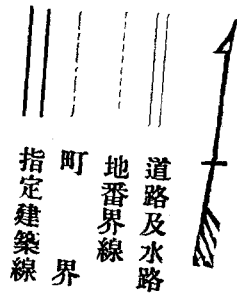 道路及水路
地番界線
町界
指定建築線